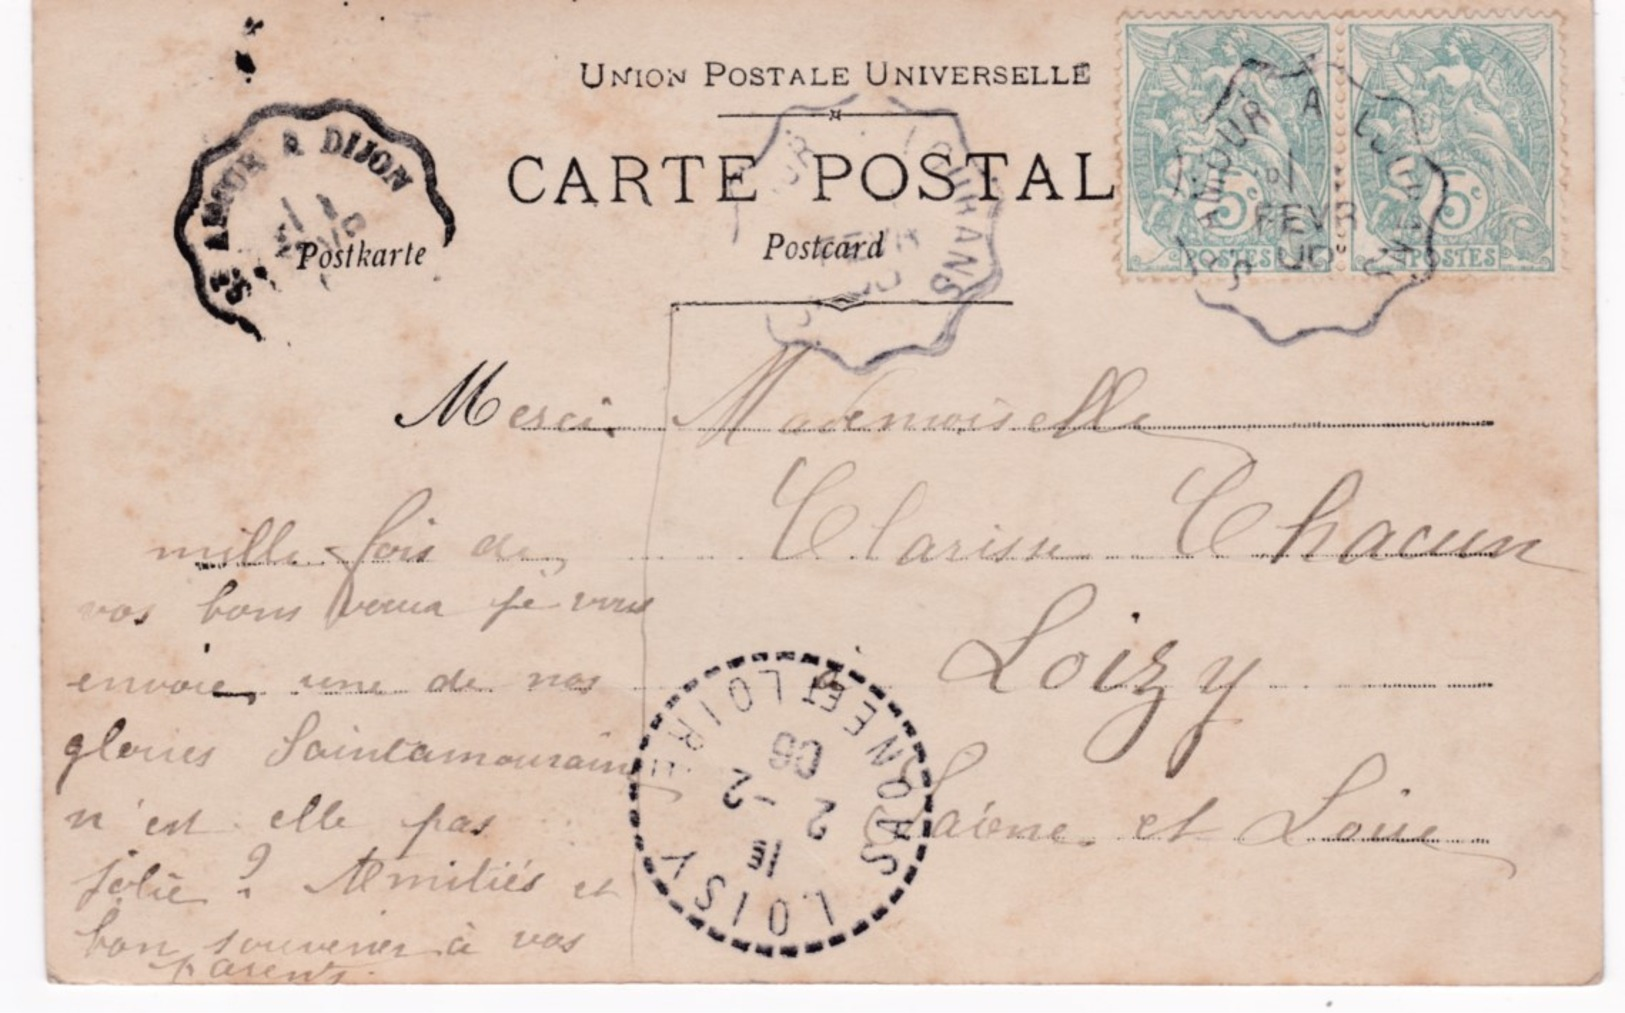 UNION POSTALE UNIVERSELLE
CARTE POSTAL
Postkarte
Postcard
ST AMOUR À DIJON
FEVR
OURANS
ST AMOUR A LOUHANS
1
FEVR
06
5c
5c
POSTES
POSTES
Merci
mille fois de
vos bons vœux je vous
envoie une de nos
gloires Saintamouraine
n'est elle pas
jolie ? Amitiés et
bon souvenir à vos
parents.
Mademoiselle
Clarisse Chacun
Loizy
Saône et Loire
LOISY
SAONE ET LOIRE
1E
2 - 2
06